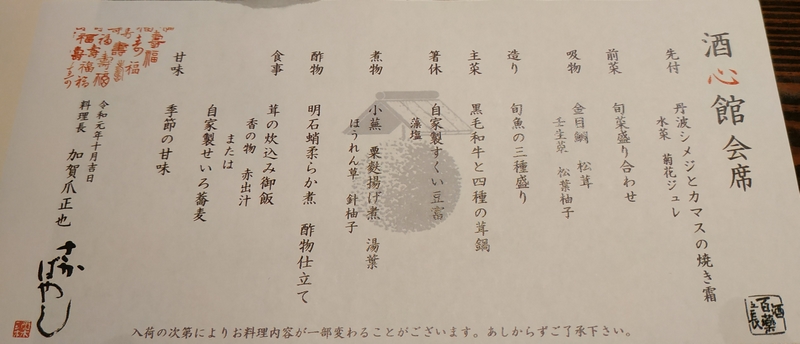 酒心館会席
先付
丹波シメジとカマスの焼き霜
水菜 菊花ジュレ
前菜
旬菜盛り合わせ
吸物
金目鯛 松茸
壬生菜 松葉柚子
造り
旬魚の三種盛り
主菜
黒毛和牛と四種の茸鍋
箸休
自家製すくい豆富
藻塩
煮物
小蕪 粟麩揚げ煮 湯葉
ほうれん草 針柚子
酢物
明石蛸柔らか煮 酢物仕立て
食事
茸の炊込み御飯
香の物 赤出汁
または
自家製せいろ蕎麦
甘味
季節の甘味
令和元年十月吉日
料理長 加賀爪正也
さかばやし
入荷の次第によりお料理内容が一部変わることがございます。あしからずご了承下さい。
酒百薬之長